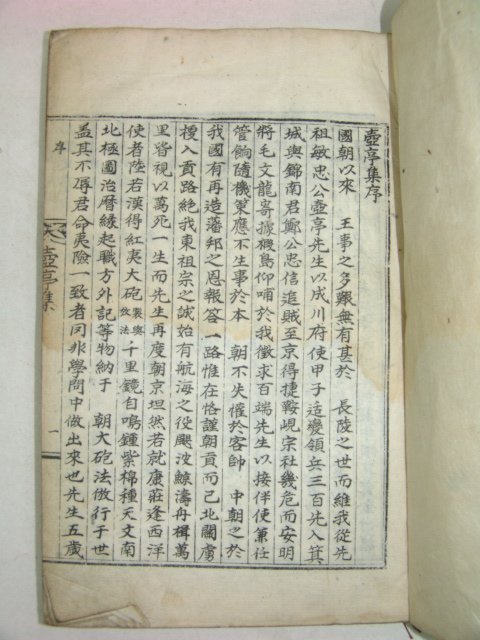 壺亭集序
國朝以來 王事之多艱無有甚於 長陵之世而維我從先
祖敏忠公壺亭先生以成川府使甲子适變領兵三百先入箕
城與錦南君鄭公忠信追賊至京得捷鞍峴宗社幾危而安明
將毛文龍寄據椵島仰哺於我徵求百端先生以接伴使兼任
管餉隨機策應不生事於本 朝不失懽於客帥 中朝之於
我國有再造藩邦之恩報答一路惟在恪謹朝貢而已北關虜
梗入貢路絶我東祖宗之誠始有航海之役颶波鯨濤舟楫萬
里皆視以萬死一生而先生再度朝京坦然若就康莊逢西洋
使者陸若漢得紅夷大砲製與放法千里鏡自鳴鍾紫棉種天文南
北極圖治曆緣起職方外記等物納于 朝大砲法倣行于世
盖其不辱君命夷險一致者罔非學問中做出來也先生五歲
序
壺亭集
一